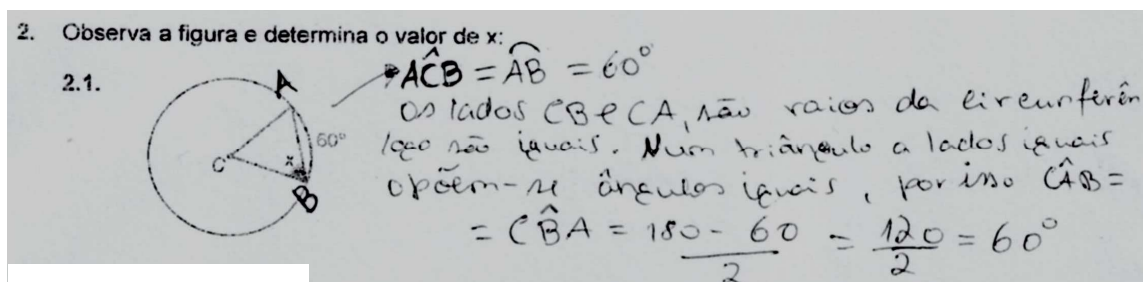 2. Observa a figura e determina o valor de x:
2.1.
A
60°
C
x
B
AĈB = A͡B = 60°
Os lados CB e CA, são raios da circunferên
logo são iguais. Num triângulo a lados iguais
opõem-se ângulos iguais, por isso CÂB =
= CB̂A = 180 - 60 / 2 = 120 / 2 = 60°